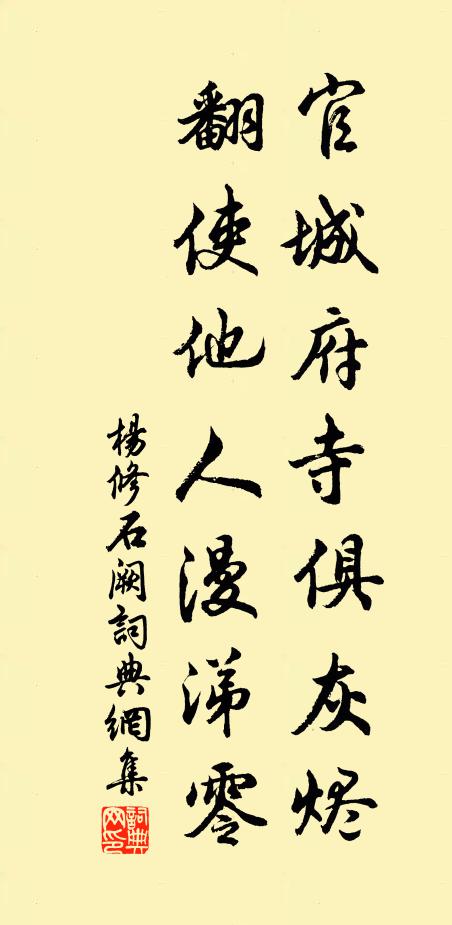 官城府寺俱灰烬
翻使他人漫涕零
楊修石阙詞典網集
詞典網印